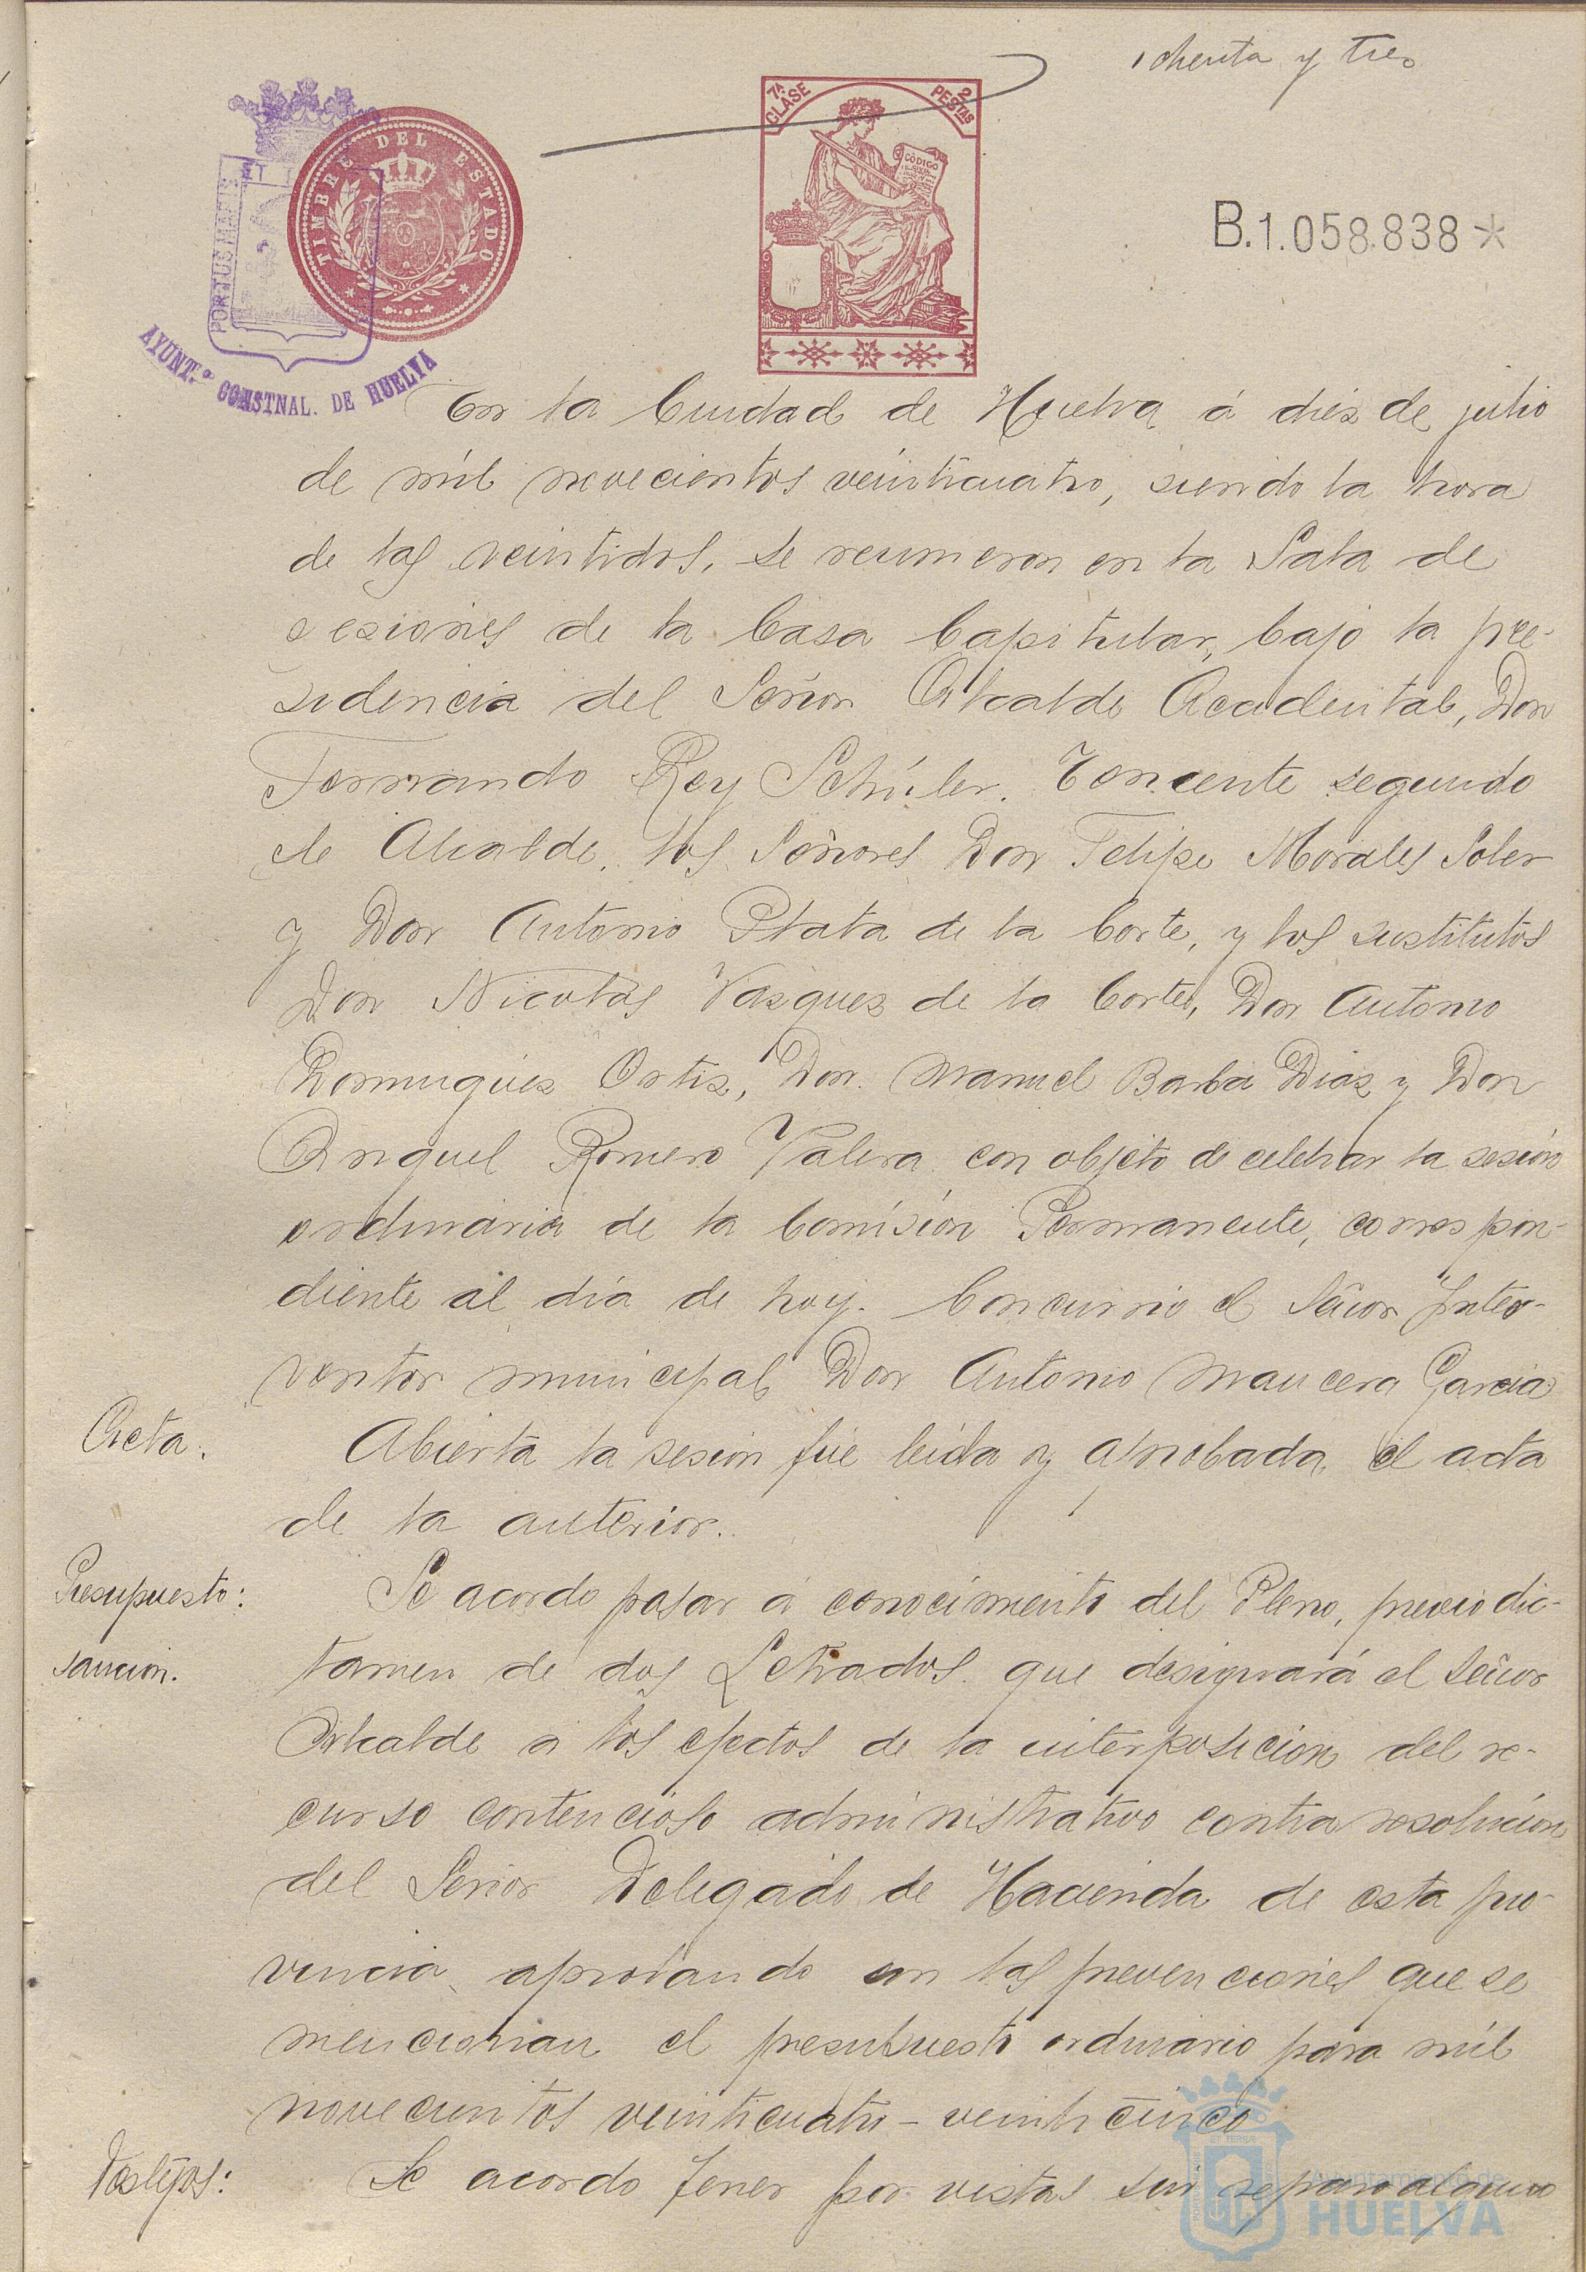 ochenta y tres
7ª CLASE
2 PESTAS
TIMBRE DEL ESTADO
CÓDIGO
PORTUS MARIS
ET
AYUNT.º CONSTNAL. DE HUELVA
B.1.058.838*
En la Ciudad de Huelva á diez de julio
de mil novecientos veinticuatro, siendo la hora
de las veintidos, se reunieron en la Sala de
sesiones de la Casa Capitular, bajo la pre-
sidencia del Señor Alcalde Accidental, Don
Fernando Rey Schúler. Teniente segundo
de Alcalde, los Señores Don Felipe Morales Soler
y Don Antonio Plata de la Corte, y los sustitutos
Don Nicolás Vazquez de la Corte, Don Antonio
Dominguez Ortiz, Don Manuel Barba Diaz y Don
Anguel Romero Valera con objeto de celebrar la sesión
ordinaria de la Comisión Permanente, correspon-
diente al día de hoy. Concurrio el Señor Inter-
ventor municipal Don Antonio Mancera Garcia
Acta.
Abierta la sesión fué leida y aprobada el acta
de la anterior.
Presupuesto:
sancion.
Se acordo pasar á conocimiento del Pleno, previo dic-
tamen de dos Letrados que designará el Señor
Alcalde a los efectos de la interposicion del re-
curso contencioso administrativo contra resolucion
del Señor Delegado de Hacienda de esta pro-
vincia, aprobando con las prevenciones que se
mencionan el presupuesto ordinario para mil
novecientos veinticuatro - veinticinco
Se acordo tener por vistas sin reparo alguno
Ayuntamiento de
HUELVA